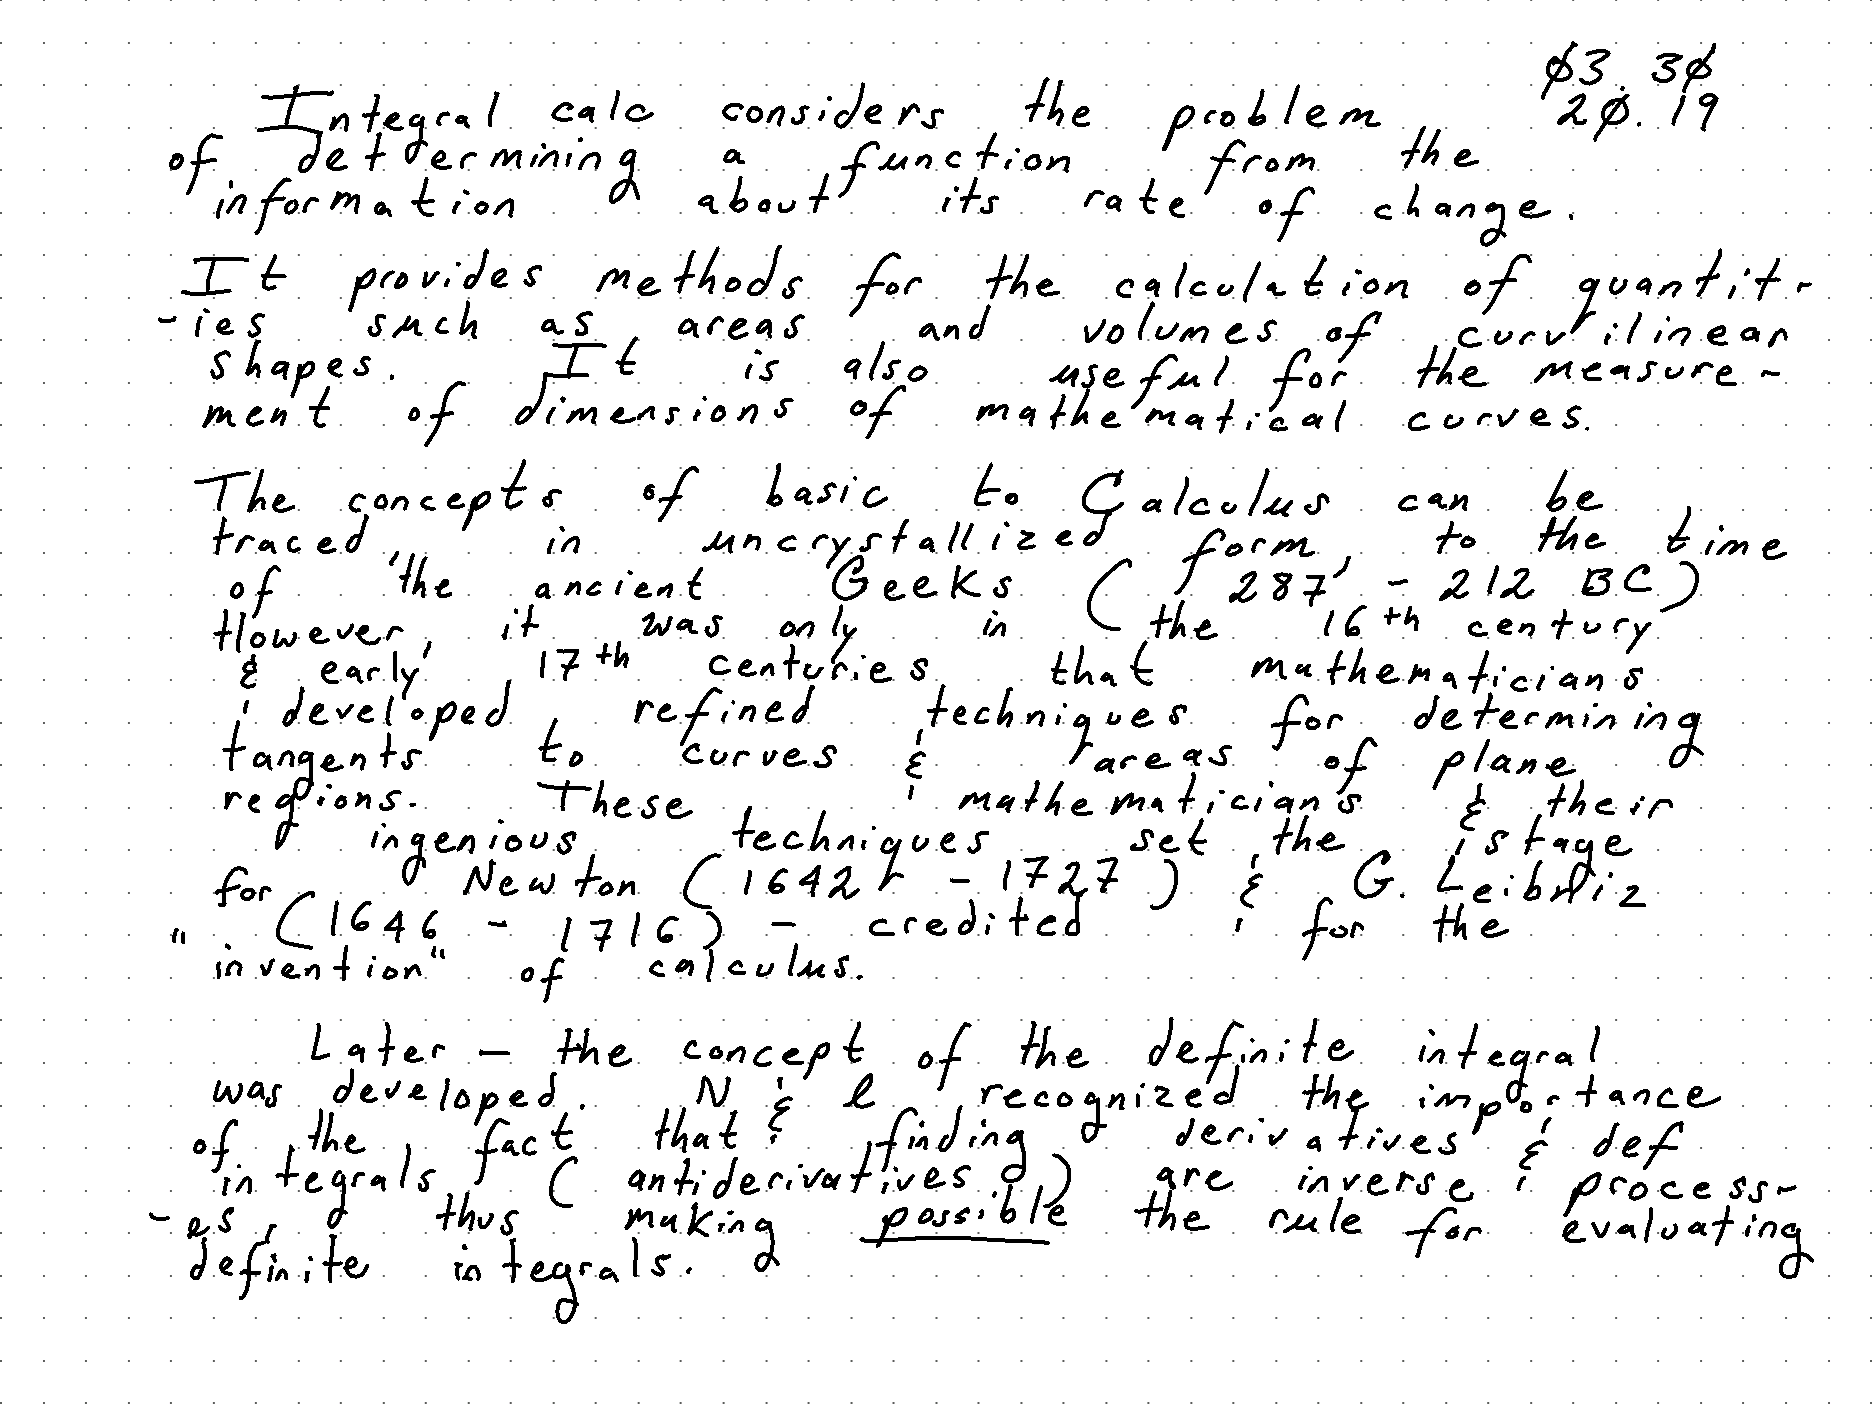 03.30
20.19
Integral calc considers the problem
of determining a function from the
information about its rate of change.
It provides methods for the calculation of quantit-
-ies such as areas and volumes of curvilinear
shapes. It is also useful for the measure-
ment of dimensions of mathematical curves.
The concepts of basic to Calculus can be
traced, in uncrystallized form, to the time
of the ancient Geeks (287 - 212 BC)
However, it was only in the 16th century
& early 17th centuries that mathematicians
developed refined techniques for determining
tangents to curves & areas of plane
regions. These mathematicians & their
ingenious techniques set the stage
for Newton (1642 - 1727) & G. Leibniz
(1646 - 1716) - credited for the
"invention" of calculus.
Later - the concept of the definite integral
was developed. N & l recognized the importance
of the fact that finding derivatives & def
integrals (antiderivatives) are inverse process-
-es, thus making possible the rule for evaluating
definite integrals.